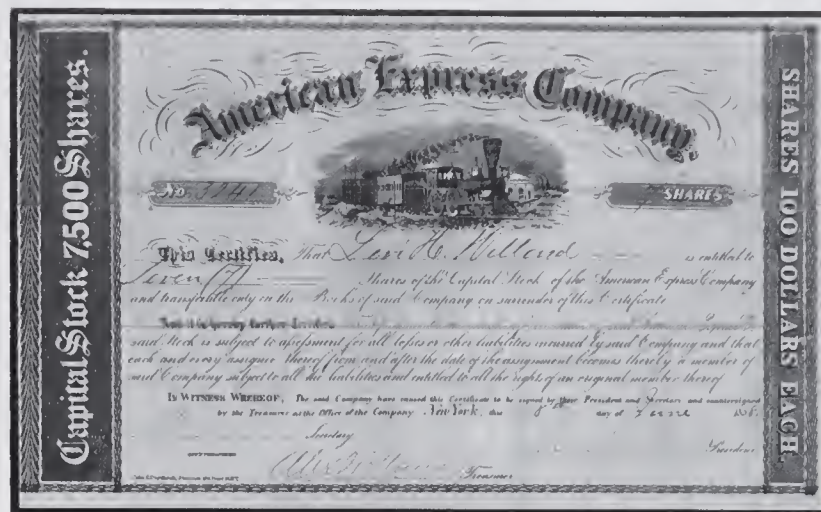 American Express Company.
Capital Stock 7,500 Shares.
SHARES 100 DOLLARS EACH.
No.
SHARES
This Certifies, That Levi H. Willard is entitled to
Seven (7) Shares of the Capital Stock of the American Express Company
and transferable only on the Books of said Company on surrender of this Certificate
And it is hereby further
said Stock is subject to assessment for all losses or other liabilities incurred by said Company and that
each and every assignee thereof from and after the date of the assignment becomes thereby a member of
said Company subject to all the liabilities and entitled to all the rights of an original member thereof
IN WITNESS WHEREOF, The said Company have caused this Certificate to be signed by their President and Secretary and countersigned
by the Treasurer at the Office of the Company New York, this day of
Secretary
President
Treasurer